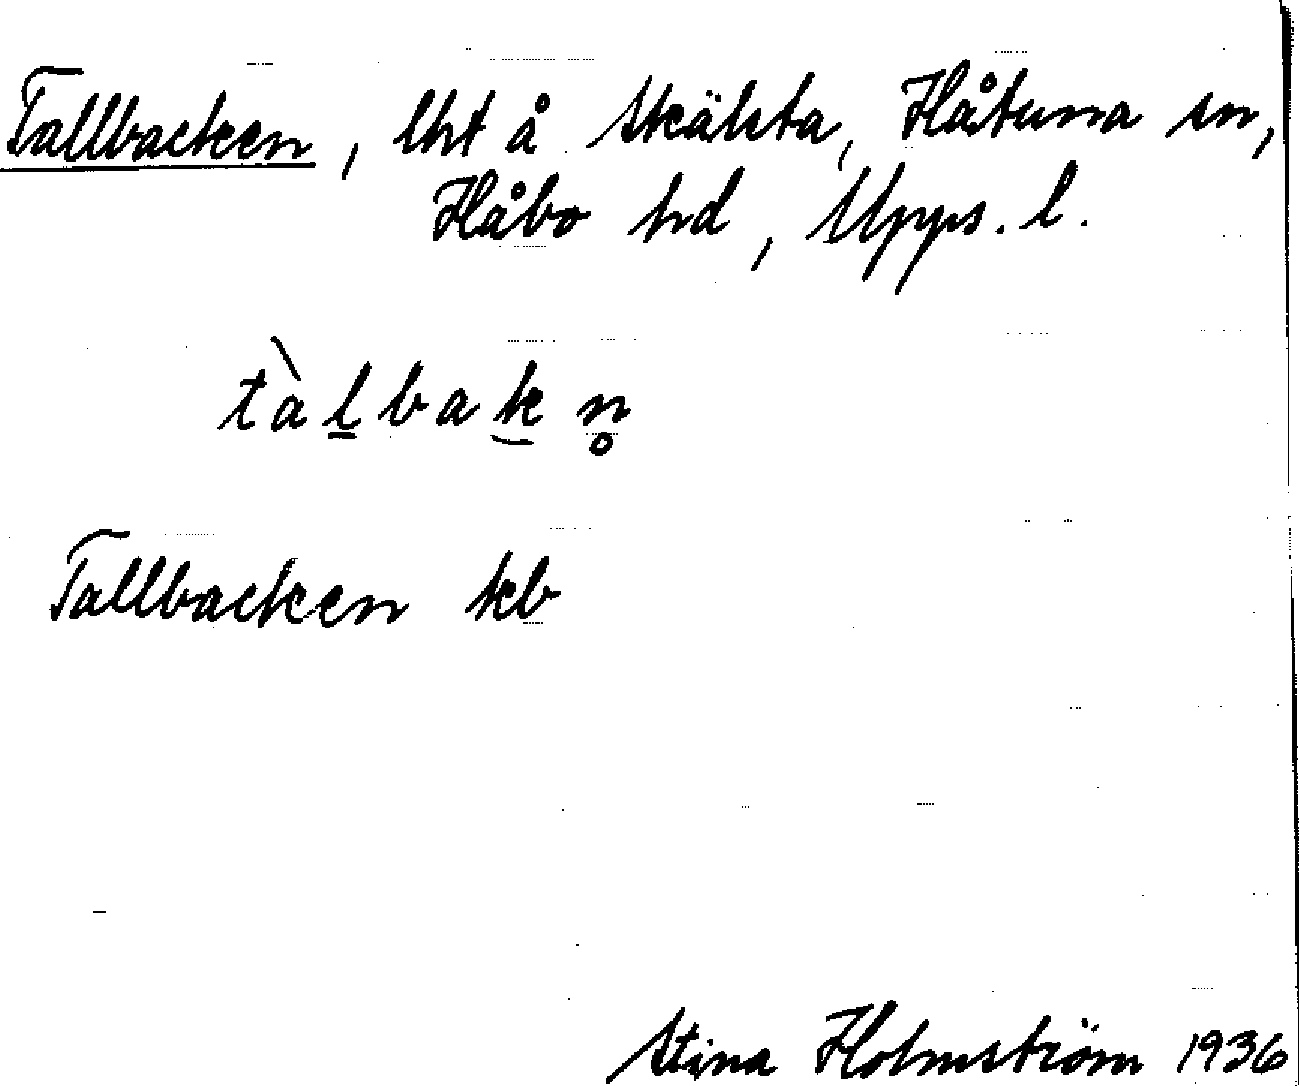 Tallbacken, lht å Skälsta, Håtuna sn,
Håbo hd, Upps. l.
tàl̲bak̲n̥
Tallbacken kb
Stina Holmström 1936